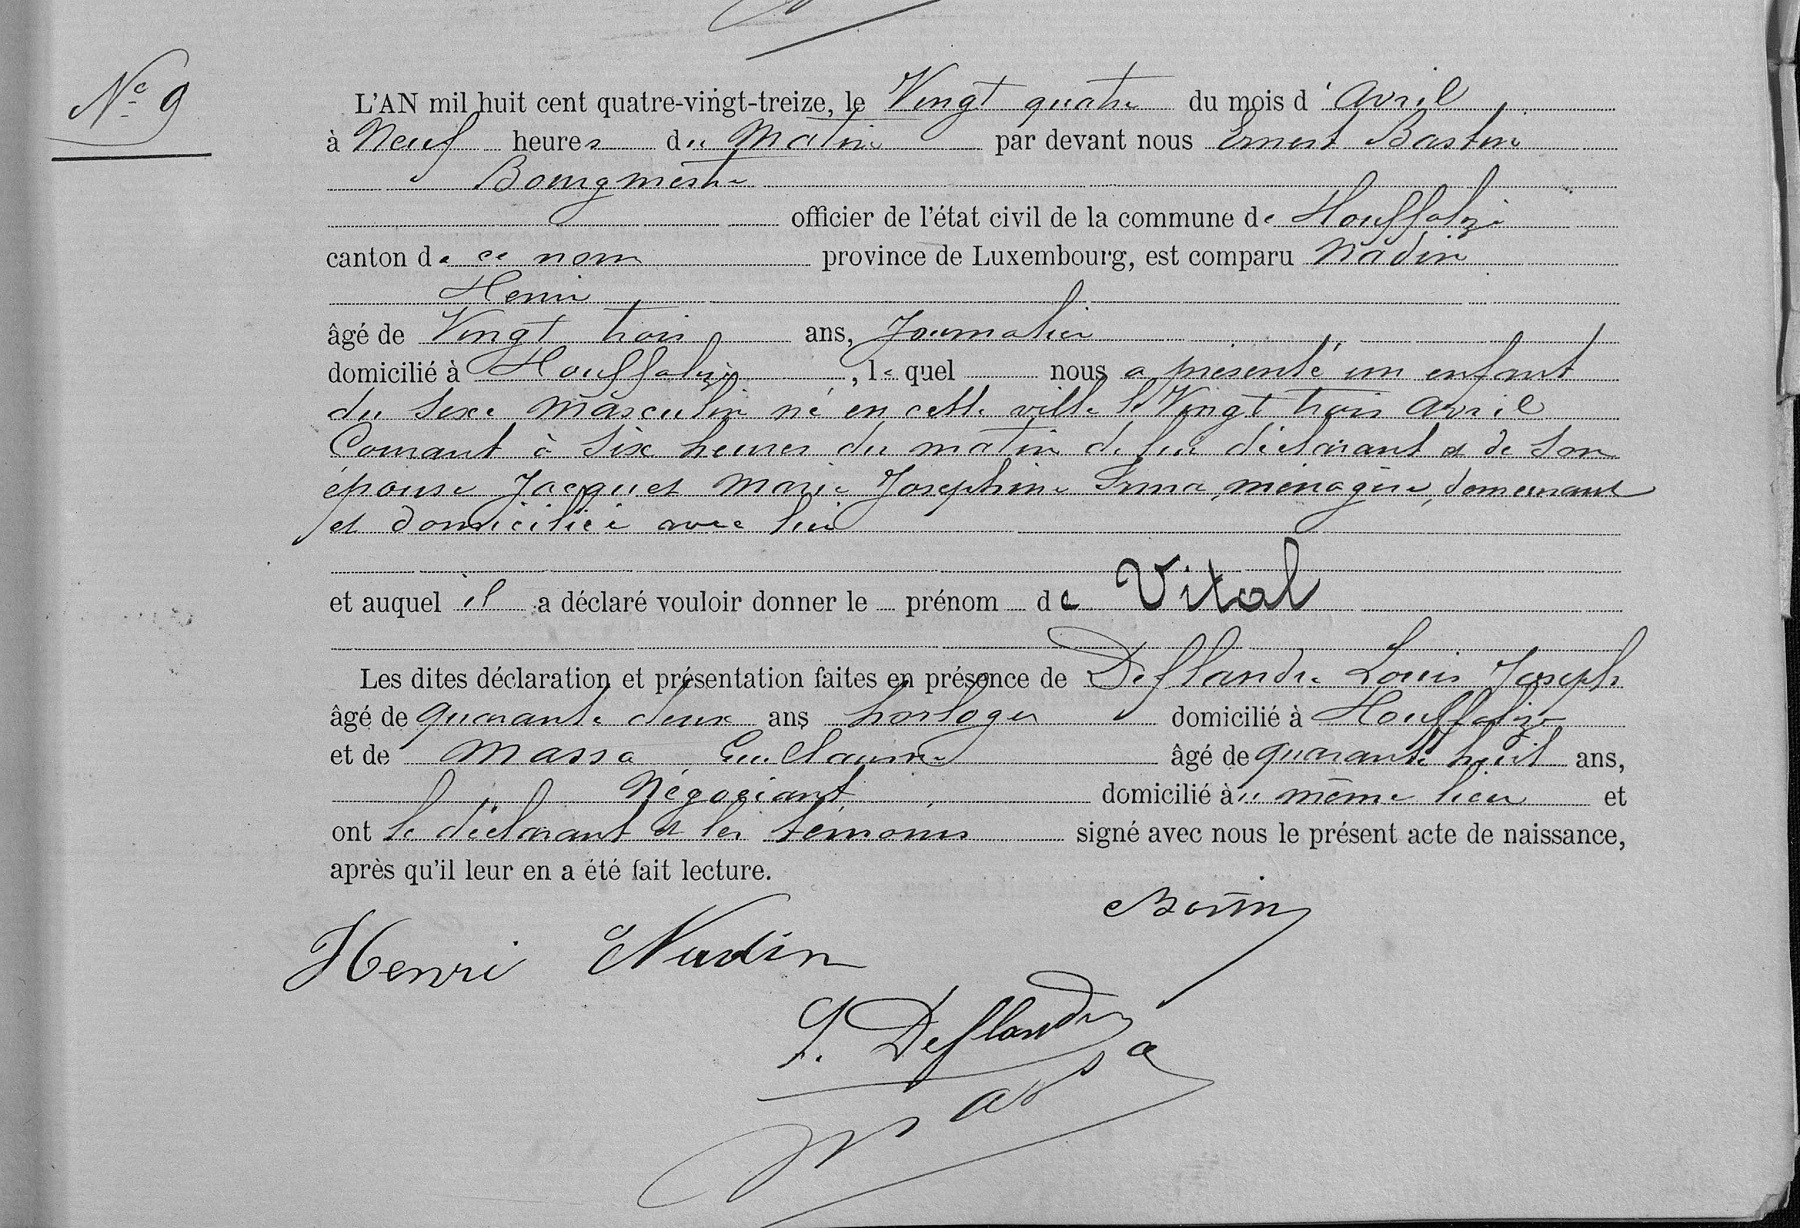 N° 9
L'AN mil huit cent quatre-vingt-treize, le Vingt quatre du mois d'avril
à Neuf heures du Matin par devant nous Ernest Bastin
Bourgmestre
officier de l'état civil de la commune de Houffalize
canton de ce nom province de Luxembourg, est comparu Nadin
Henri
âgé de Vingt trois ans, Journalier
domicilié à Houffalize, lequel nous a présenté un enfant
du sexe masculin né en cette ville le Vingt trois avril
Courant à six heures du matin de lui déclarant et de son
épouse Jacquet Marie Josephine Irma, ménagère, demeurant
et domiciliée avec lui
et auquel il a déclaré vouloir donner le prénom de Vital
Les dites déclaration et présentation faites en présence de Deflandre Louis Joseph
âgé de quarante deux ans horloger domicilié à Houffalize
et de Massa Guillaume âgé de quarante huit ans,
Négociant domicilié à même lieu et
ont le déclarant et les témoins signé avec nous le présent acte de naissance,
après qu'il leur en a été fait lecture.
Bastin
Henri Nadin
L. Deflandre
Massa